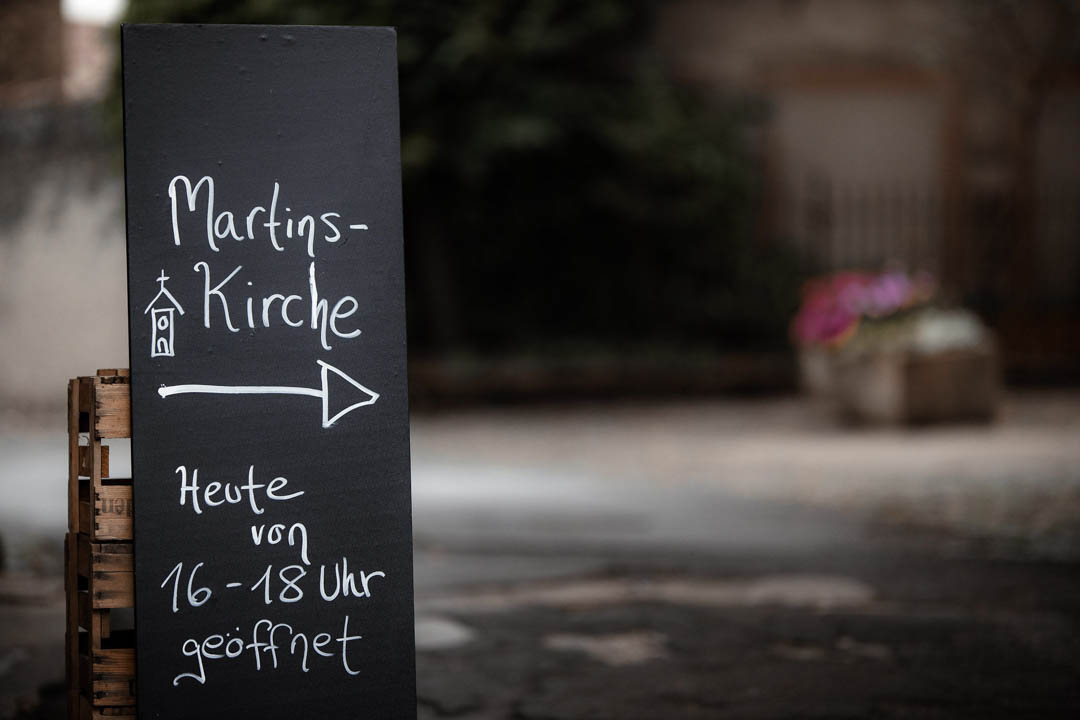 Martins-
Kirche
Heute
von
16-18 Uhr
geöffnet